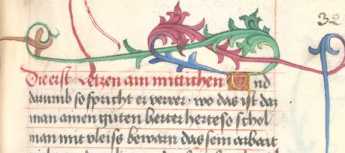 32
Die erst Letzen am mitichen Und
darumb so spricht er verrer · wo das ist das
man amen guten herter herte so schol
man mit vleiss bewarn das sein arbait